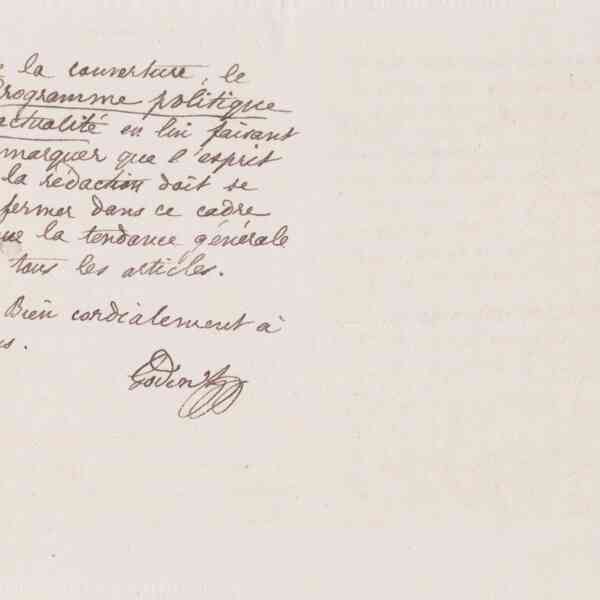 la couverture, le
programme politique
actualité en lui faisant
marquer que l'esprit
la rédaction doit se
fermer dans ce cadre
que la tendance générale
tous les articles.
Bien cordialement à
Godin